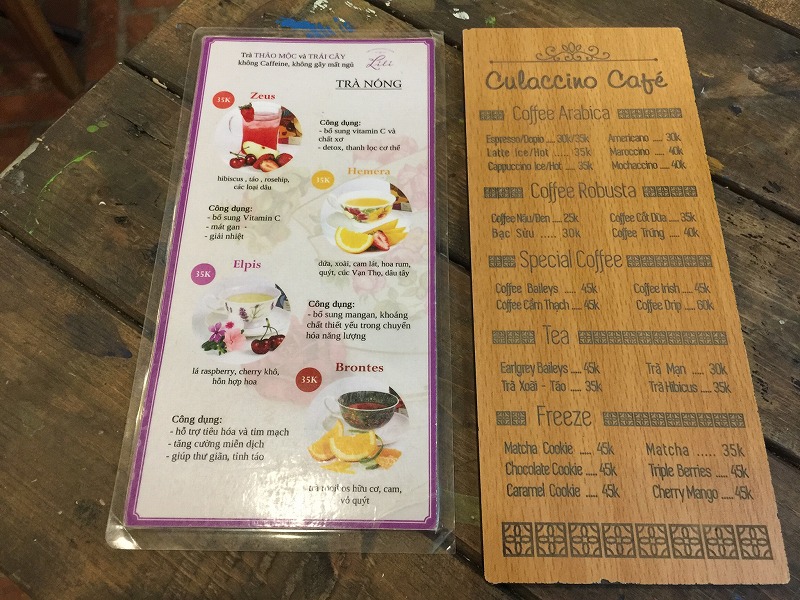 Trà THẢO MỘC và TRÁI CÂY
không Caffeine, không gây mất ngủ
Lili
TRÀ NÓNG
35K
Zeus
Công dụng:
- bổ sung vitamin C và
chất xơ
- detox, thanh lọc cơ thể
hibiscus , táo , rosehip,
các loại dâu
35K
Hemera
Công dụng:
- bổ sung Vitamin C
- mát gan -
- giải nhiệt
dứa, xoài, cam lát, hoa rum,
quýt, cúc Vạn Thọ, dâu tây
35K
Elpis
Công dụng:
- bổ sung mangan, khoáng
chất thiết yếu trong chuyển
hóa năng lượng
lá raspberry, cherry khô,
hỗn hợp hoa
35K
Brontes
Công dụng:
- hỗ trợ tiêu hóa và tim mạch
- tăng cường miễn dịch
- giúp thư giãn, tỉnh táo
trà rooibos hữu cơ, cam,
vỏ quýt
Culaccino Café
Coffee Arabica
Espresso/Dopio .... 30k/35k
Americano .... 30k
Latte Ice/Hot ...... 35k
Maroccino .... 40k
Cappuccino Ice/Hot .... 35k
Mochaccino .... 40k
Coffee Robusta
Coffee Nâu/Đen .... 25k
Coffee Cốt Dừa .... 35k
Bạc Sửu ..... 30k
Coffee Trứng .... 40k
Special Coffee
Coffee Baileys .... 45k
Coffee Irish .... 45k
Coffee Cẩm Thạch .... 45k
Coffee Drip .... 60k
Tea
Earlgrey Baileys .... 45k
Trà Mạn .... 30k
Trà Xoài - Táo .... 35k
Trà Hibicus .... 35k
Freeze
Matcha Cookie .... 45k
Matcha ..... 35k
Chocolate Cookie .... 45k
Triple Berries .... 45k
Caramel Cookie .... 45k
Cherry Mango .... 45k